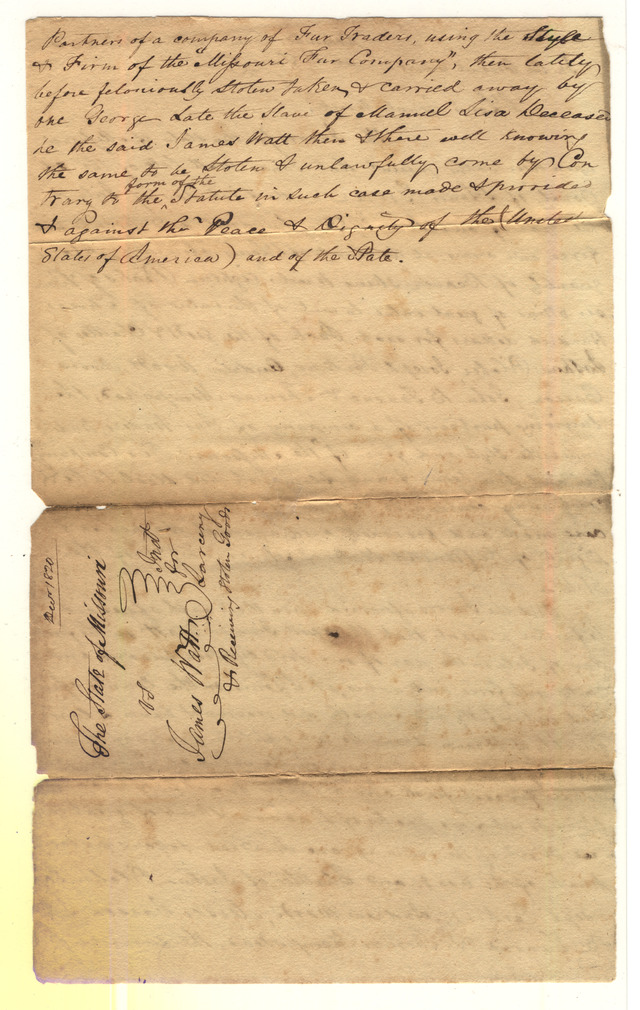 Partners of a company of Fur Traders, using the Style
& Firm of the "Missouri Fur Company", then lately
before feloniously Stolen taken & carried away by
one George Late the Slave of Manuel Lisa Deceased
he the said James Watt then & there well knowing
the same to be Stolen & unlawfully come by Con
form of the
trary to the Statute in such case made & provided
& against the Peace & Dignity of the (United
States of America) and of the State.
Decr 1820
The State of Missouri
vs
James Watt.
Indt
for
Larceny
& Receiving Stolen Goods